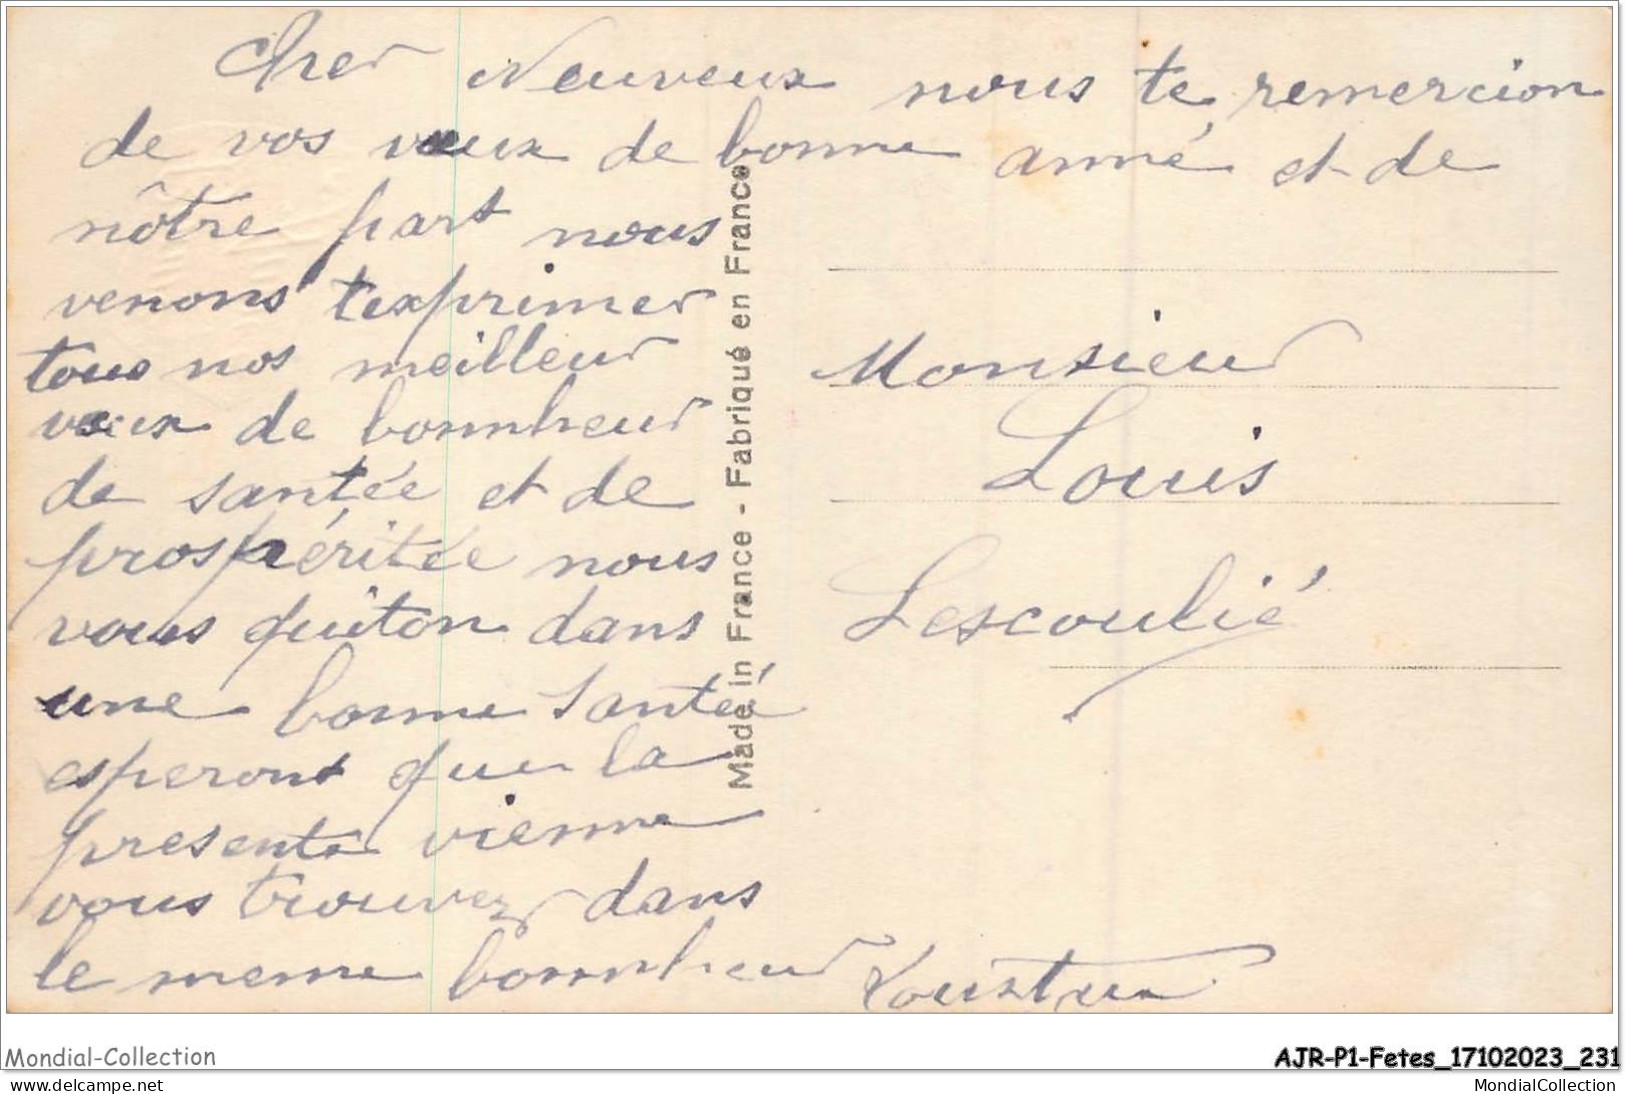 Cher Neuveux nous te remercion
de vos vœux de bonne anné et de
nôtre part nous
venons t'exprimer
tous nos meilleur
vœux de bonnheur
de santée et de
prospéritée nous
vous quiton dans
une bonne santeé
esperont que la
presente vienne
vous trouver dans
le meme bonnheur
Made in France - Fabriqué en France
Monsieur
Louis
Lescoulié
Mondial-Collection
AJR-P1-Fetes_17102023_231
www.delcampe.net
MondialCollection